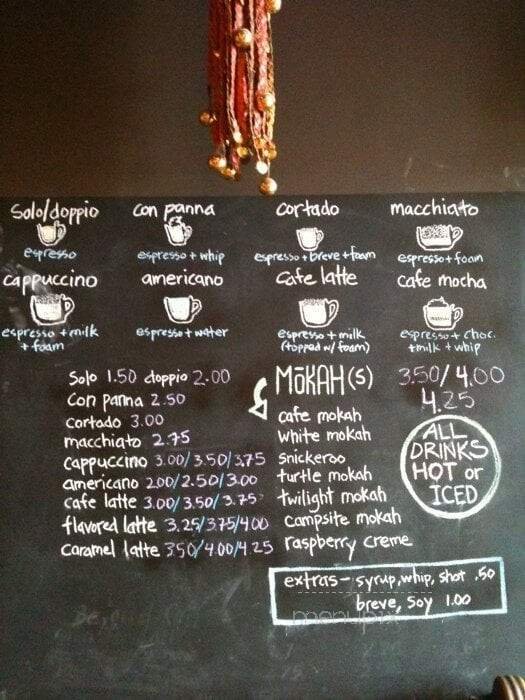 Solo/doppio con panna cortado macchiato
espresso espresso + whip espresso + breve + foam espresso + foam
cappuccino americano cafe latte cafe mocha
espresso + milk + foam espresso + water espresso + milk (topped w/ foam) espresso + choc. + milk + whip
Solo 1.50 doppio 2.00
con panna 2.50
cortado 3.00
macchiato 2.75
cappuccino 3.00/3.50/3.75
americano 2.00/2.50/3.00
cafe latte 3.00/3.50/3.75
flavored latte 3.25/3.75/4.00
caramel latte 3.50/4.00/4.25
MōKAH(s) 3.50/4.00
4.25
cafe mokah
white mokah
snickeroo
turtle mokah
twilight mokah
campsite mokah
raspberry creme
ALL
DRINKS
HOT or
ICED
extras - syrup, whip, shot .50
breve, soy 1.00
menupix